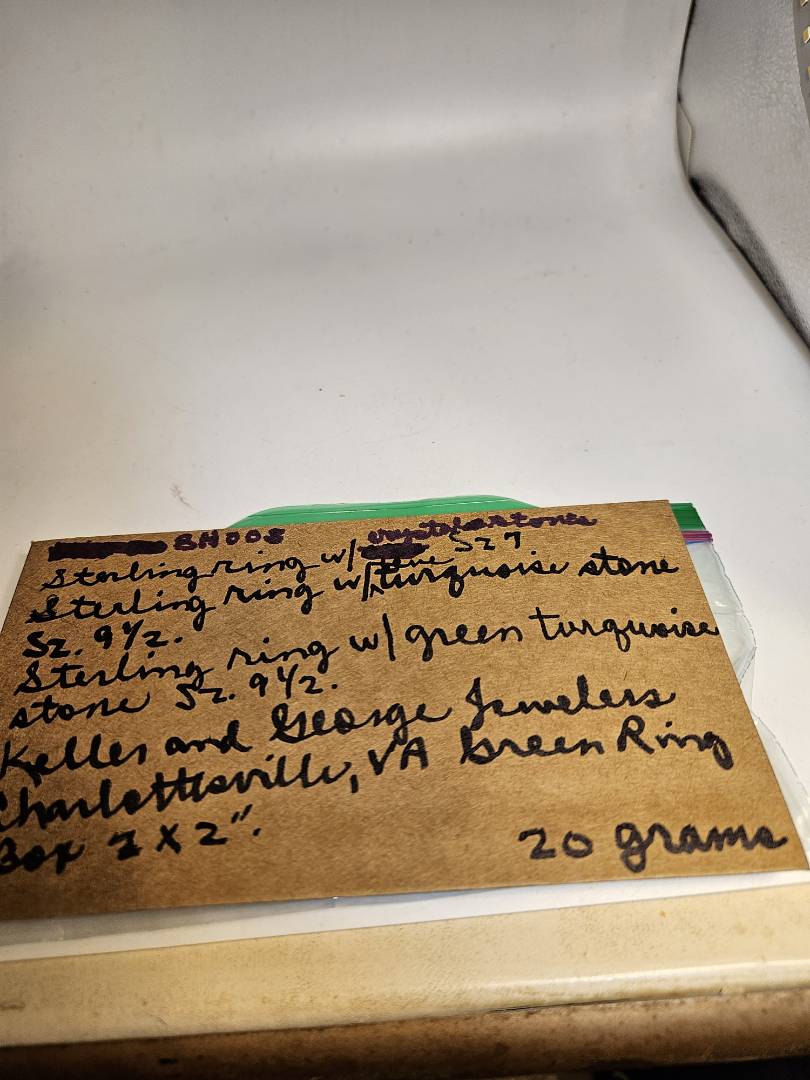 BH008
Sterling ring w/ crystal stones Sz 7
Sterling ring w/ blue turquoise stone
Sz. 9 1/2.
Sterling ring w/ green turquoise
stone Sz. 9 1/2.
Keller and George Jewelers
Charlottesville, VA Green Ring
Box 2 X 2".
20 grams